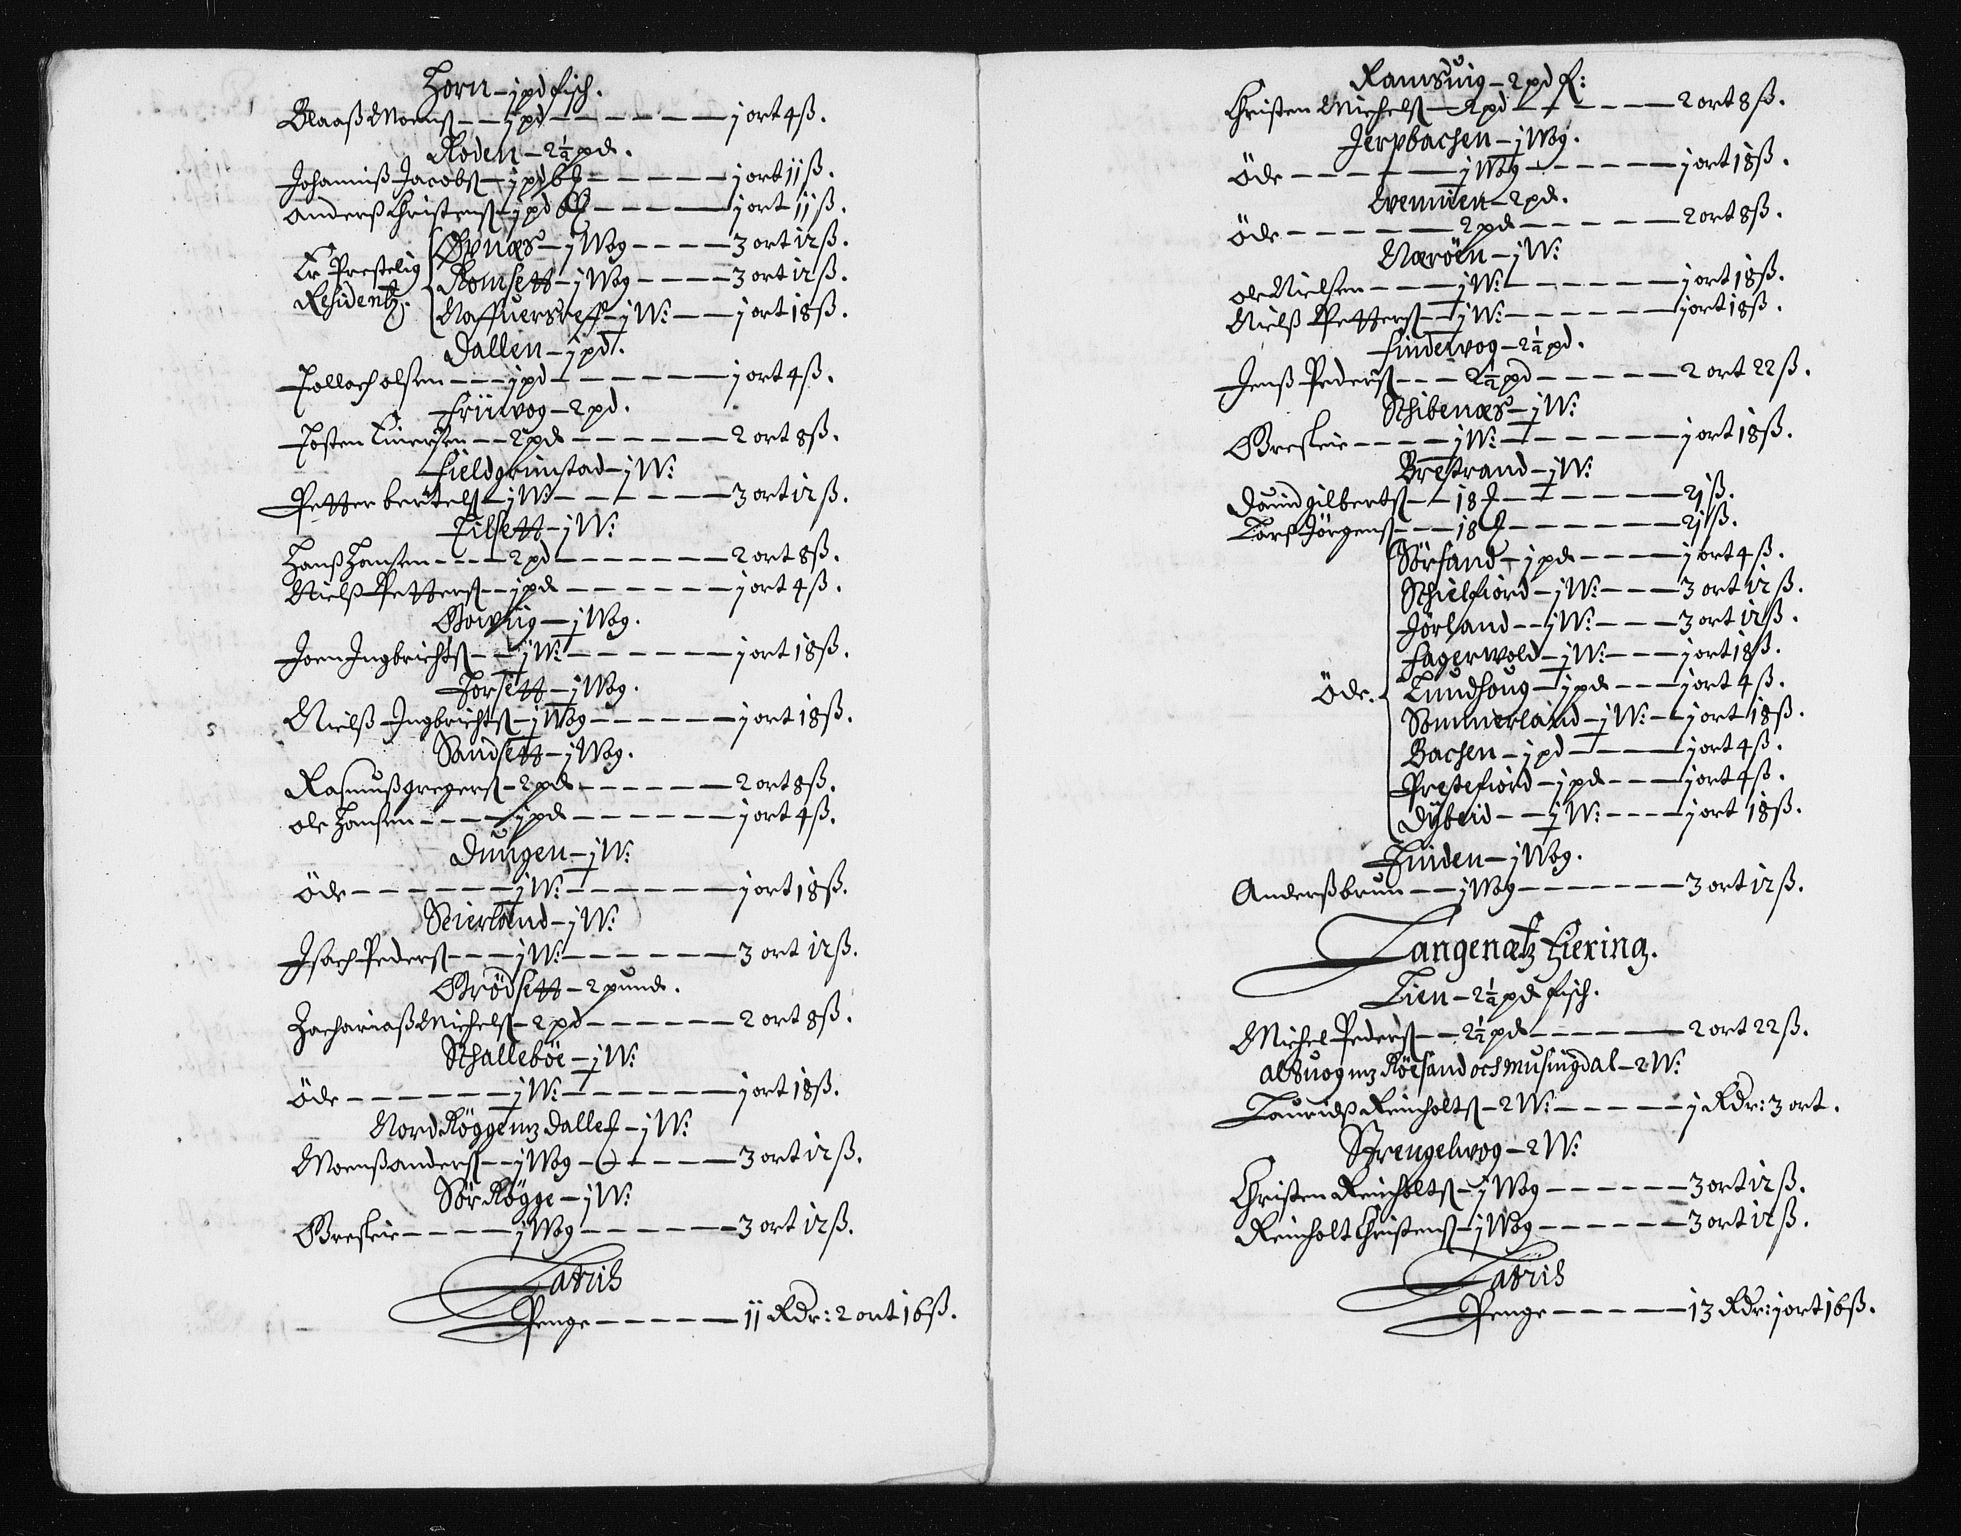 Horn – j pd fisch.
Claaß Moenß – – j pd – – – – – – j ort 4 ß.
Roden – 2½ pd.
Johanniß Jacobß – j pd 6 – – – – – j ort 11 ß.
Anderß Christenß – j pd – – – – – j ort 11 ß.
Er Prestelig Residentz.
Øxnæs – j Wog – – – – 3 ort 12 ß.
Romsett – j Wog – – – – 3 ort 12 ß.
Naffuersteff – j W: – – j ort 18 ß.
Dallen – j pd.
Tollach olsen – – – j pd – – – – – – j ort 4 ß.
Friiwog – 2 pd.
Tosten Siuersen – – 2 pd – – – – – – 2 ort 8 ß.
Fieldgrimstad – j W:
Petter bertelß – j W: – – – – – – 3 ort 12 ß.
Tilsett – j W:
Hanß Hansen – – – – 2 pd – – – – – – 2 ort 8 ß.
Nielß Petterß – – j pd – – – – – – j ort 4 ß.
– j Wog.
Joen Ingbrichtß – – j W: – – – – – – j ort 18 ß.
Forsett – j Wog.
Nielß Ingbrichtß – j Wog – – – – – j ort 18 ß.
Sandsett – j Wog.
Rasmuß gregerß – 2 pd – – – – – – 2 ort 8 ß.
Ole Hansen – – – – j pd – – – – – – j ort 4 ß.
Dungen – j W:
Öde – – – – – – j W: – – – – – – j ort 18 ß.
Seierland – j W:
Isach Pederß – – – j W: – – – – – – 3 ort 12 ß.
Grödsett – 2 pund.
Zachariaß Michelß – 2 pd – – – – – – 2 ort 8 ß.
Schalleböe – j W:
Öde – – – – – – j W: – – – – – – j ort 18 ß.
Nord Rögge mz dallen – j W:
Moenß anderß – – j Wog – – – – – 3 ort 12 ß.
Sör Rögge – j W:
– – – – j Wog – – – – – – 3 ort 12 ß.
Latris
Penge – – – – – 11 Rdr: 2 ort 16 ß.
Ramsuig – 2 pd f:
Christen Michelß – 2 pd – – – – – 2 ort 8 ß.
Jerpbachen – j Wog.
Öde – – – – – – j Wog – – – – – – j ort 18 ß.
– 2 pd.
Öde – – – – – – 2 pd – – – – – – 2 ort 8 ß.
Næröen – j W:
ole Nielsen – – – j W: – – – – – – j ort 18 ß.
Nielß Petterß – – j W: – – – – – – j ort 18 ß.
Finderwog – 2½ pd.
Jenß Pederß – – – 2½ pd – – – – – 2 ort 22 ß.
Schibenæs – j W:
– – – – j W: – – – – – – j ort 18 ß.
Brestrand – j W:
Dauid gilbertß – – 18 – – – – – – 21 ß.
Lars Jörgenß – – – 18 – – – – – – 21 ß.
Öde.
Sörsand – j pd – – – – j ort 4 ß.
Schielfiord – j W: – – – 3 ort 12 ß.
Jörland – – j W: – – – 3 ort 12 ß.
Fagerwold – j W: – – j ort 18 ß.
Lundhoug – j pd – – – j ort 4 ß.
Sommerland – j W: – – j ort 18 ß.
Bachen – j pd – – – – j ort 4 ß.
Prestefiord – j pd – – – j ort 4 ß.
Dybeid – – j W: – – – – j ort 18 ß.
Tinden – j Wog.
Anderß brun – – j Wog – – – – – – 3 ort 12 ß.
Langenætz Fiering.
Lien – 2½ pd fisch.
Michel Pederß – – 2½ pd – – – – – 2 ort 22 ß.
Alsuog mz Röesand och musingdal – 2 W:
Lauridß Reinholtß – 2 W: – – – – – j Rdr: 3 ort.
Strengelwog – 2 W:
Christen Reinholtß – j Wog – – – – – – 3 ort 12 ß.
Reinholt Christenß – j Wog – – – – – – 3 ort 12 ß.
Latris
Penge – – – – – 13 Rdr: j ort 16 ß.